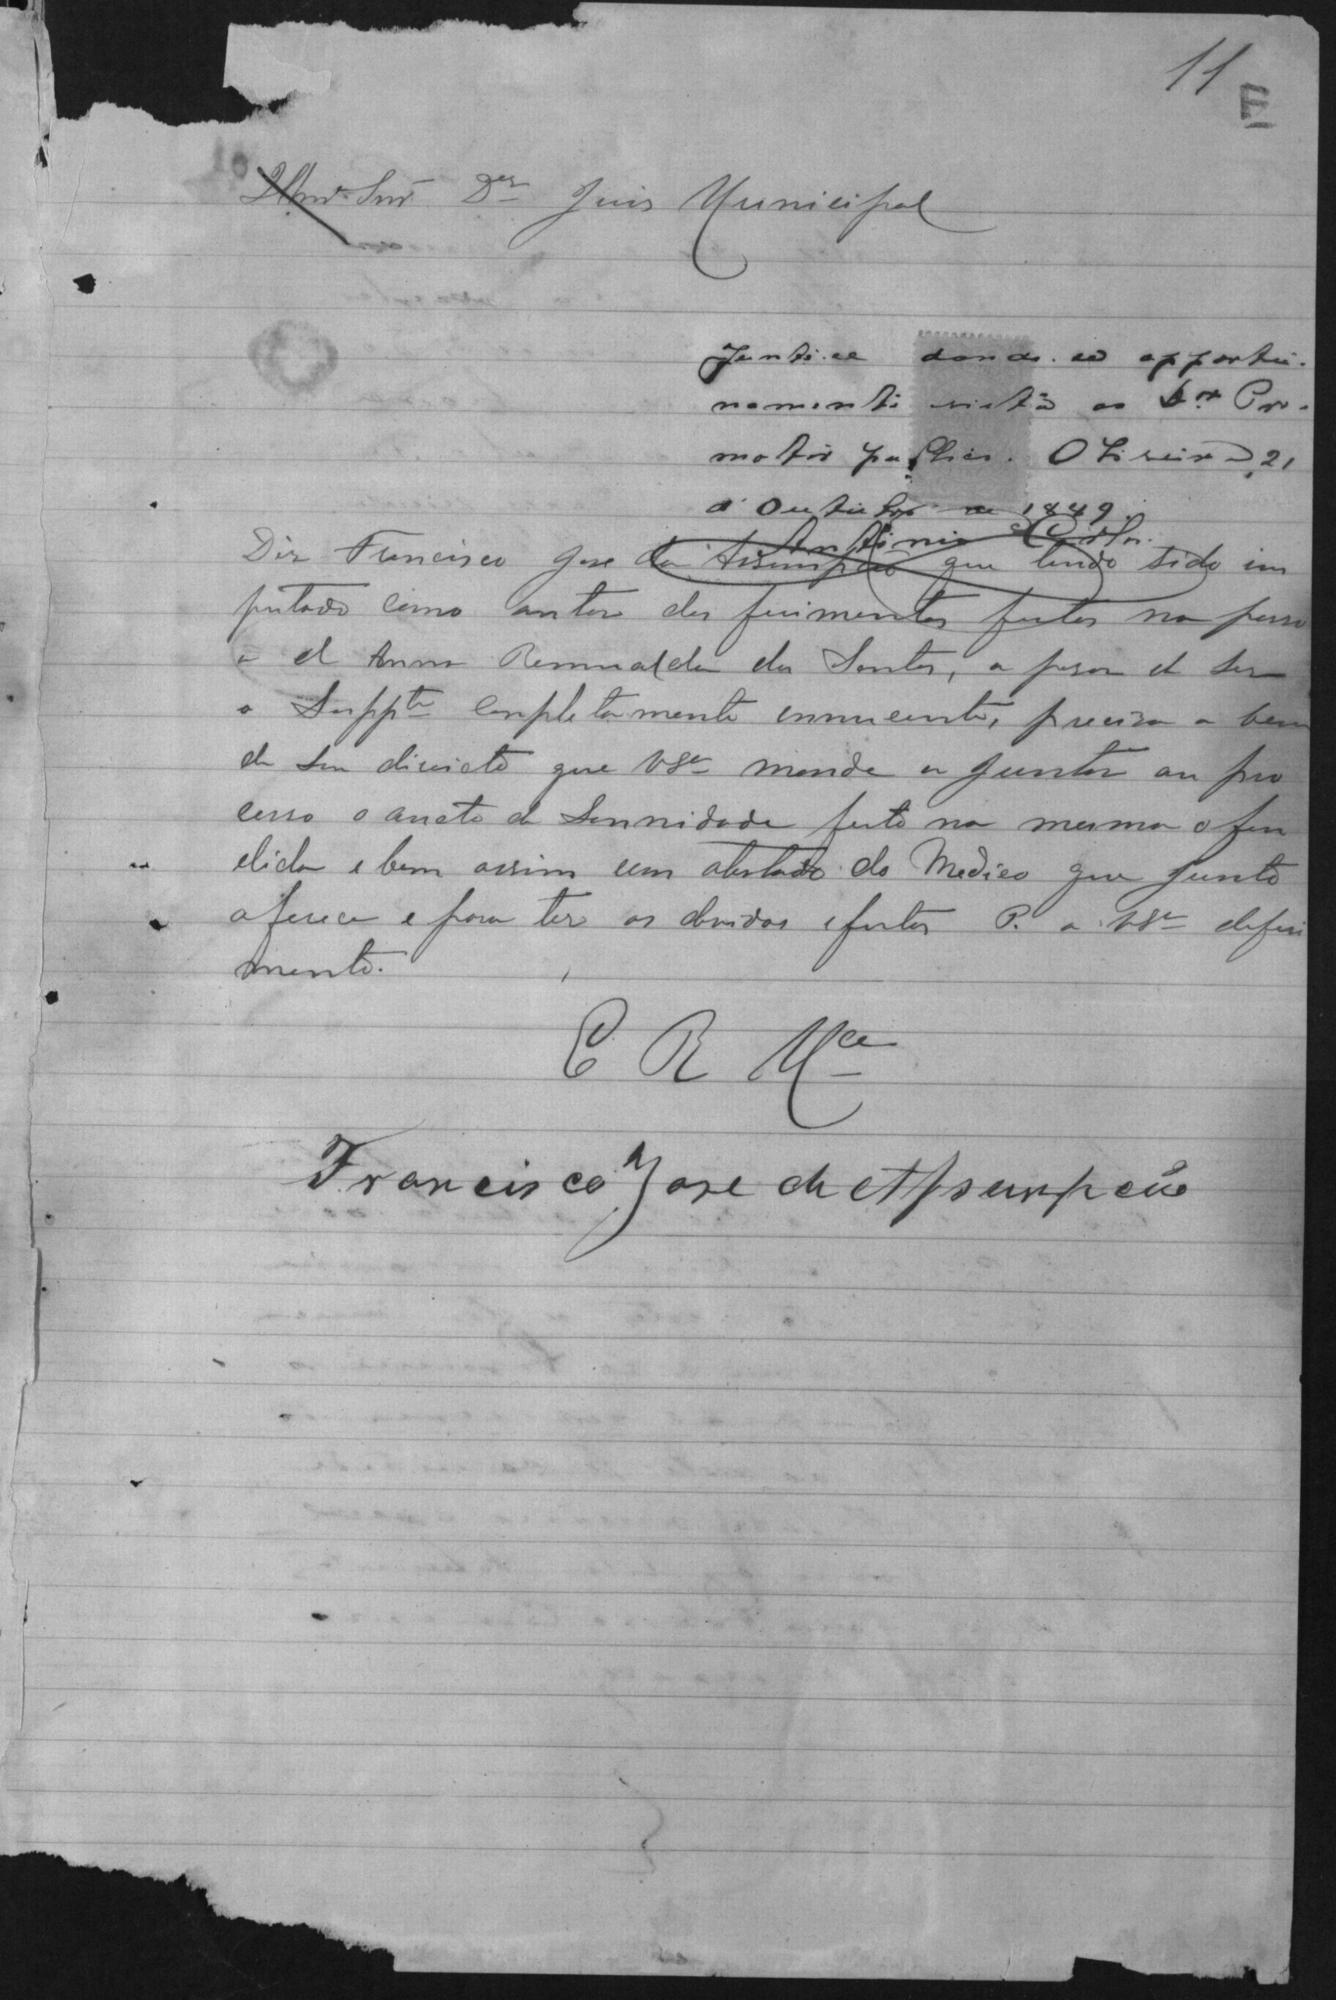 11
Illmo Snr Dor Juis Municipal
Junte-se dando-se opportu-
namente vista ao Dor Pro-
motor publico. Oliveira, 21
de Outubro de 1889.
Antonio
Diz Francisco Jose da Assumpção que tendo sido im
putado como autor dos firimentos feitos na pesso
a d Anna Romualda dos Santos, a pesar d ser
o Suppte completamente innucente, precisa a bem
de seu direicto que VSa mande a juntar au pro
cesso o aucto de Sannidade feito na mesma ofen
dida e bem assim um atestado do Medico que junto
oferece e para ter os devidos efeitos P. a VSa deferi
mento.
E R Mce
Francisco Jose da Assumpção